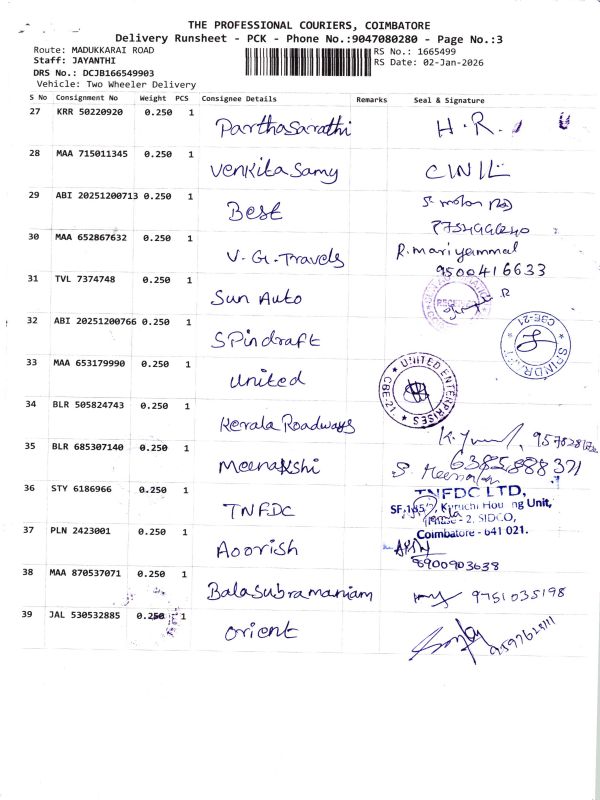 THE PROFESSIONAL COURIERS, COIMBATORE
Delivery Runsheet - PCK - Phone No.:9047080280 - Page No.:3
Route: MADUKKARAI ROAD
RS No.: 1665499
Staff: JAYANTHI
RS Date: 02-Jan-2026
DRS No.: DCJB166549903
Vehicle: Two Wheeler Delivery
S No Consignment No Weight PCS Consignee Details Remarks Seal & Signature
27 KRR 50220920 0.250 1 Parthasarathi H.R.
28 MAA 715011345 0.250 1 Venkitasamy CINIL
29 ABI 20251200713 0.250 1 Best
30 MAA 652867632 0.250 1 V.G.Travels R.mariyammal
9500416633
31 TVL 7374748 0.250 1 Sun Auto
32 ABI 20251200766 0.250 1 SPindraft SPINDRAFT CBE-21
33 MAA 653179990 0.250 1 United UNITED ENTERPRISES CBE-21
34 BLR 505824743 0.250 1 Kerala Roadways
35 BLR 685307140 0.250 1 Meenakshi
6385888371
36 STY 6186966 0.250 1 TNFDC TNFDC LTD,
Kuruchi Housing Unit,
Phase - 2, SIDCO,
Coimbatore - 641 021.
37 PLN 2423001 0.250 1 Aoorish
8900903638
38 MAA 870537071 0.250 1 Balasubramaniam 9751035198
39 JAL 530532885 0.250 1 Orient